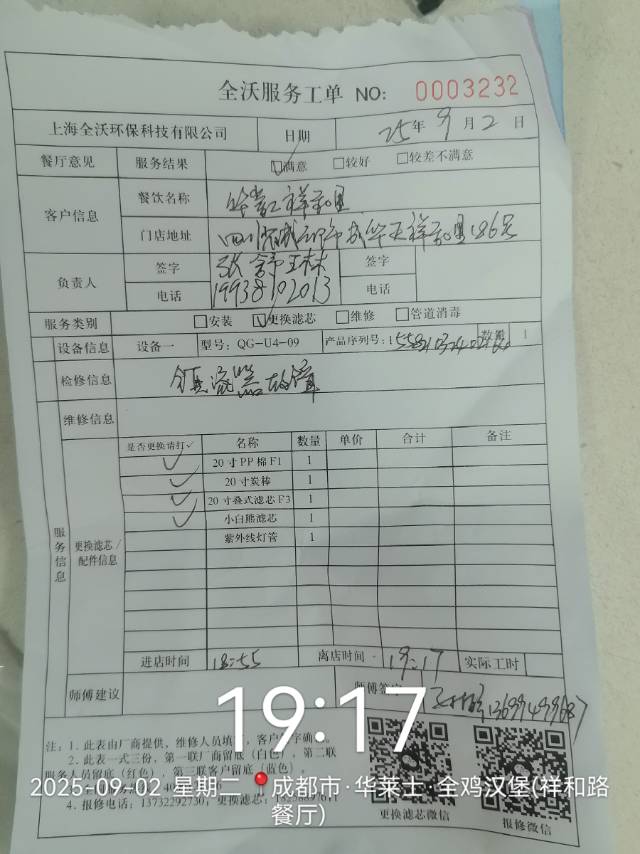 全沃服务工单 NO: 0003232
上海全沃环保科技有限公司 日期 25年 9月 2日
餐厅意见 服务结果 ☑满意 □较好 □较差不满意
客户信息 餐饮名称
门店地址 四川省成都市成华区祥和里186号
负责人 签字 签字
电话 19938102013 电话
服务类别 □安装 ☑更换滤芯 □维修 □管道消毒
设备信息 设备一 型号: QG-U4-09 产品序列号: 数量 1
检修信息 镇流器故障
维修信息
服务信息
更换滤芯/配件信息
是否更换请打✓ 名称 数量 单价 合计 备注
✓ 20寸PP棉F1 1
✓ 20寸炭棒 1
✓ 20寸叠式滤芯F3 1
✓ 小白熊滤芯 1
紫外线灯管 1
进店时间 18:55 离店时间 19:17 实际工时
师傅建议 师傅签字 13699499687
19:17
注: 1. 此表由厂商提供, 维修人员填 客户 字确
2. 此表一式三份, 第一联厂商留底(白色), 第二联
服务人员留底(红色), 第三联客户留底(蓝色)
2025-09-02 星期二 成都市·华莱士·全鸡汉堡(祥和路餐厅)
4. 报修电话: 13732292730; 更换滤芯:
更换滤芯微信 报修微信